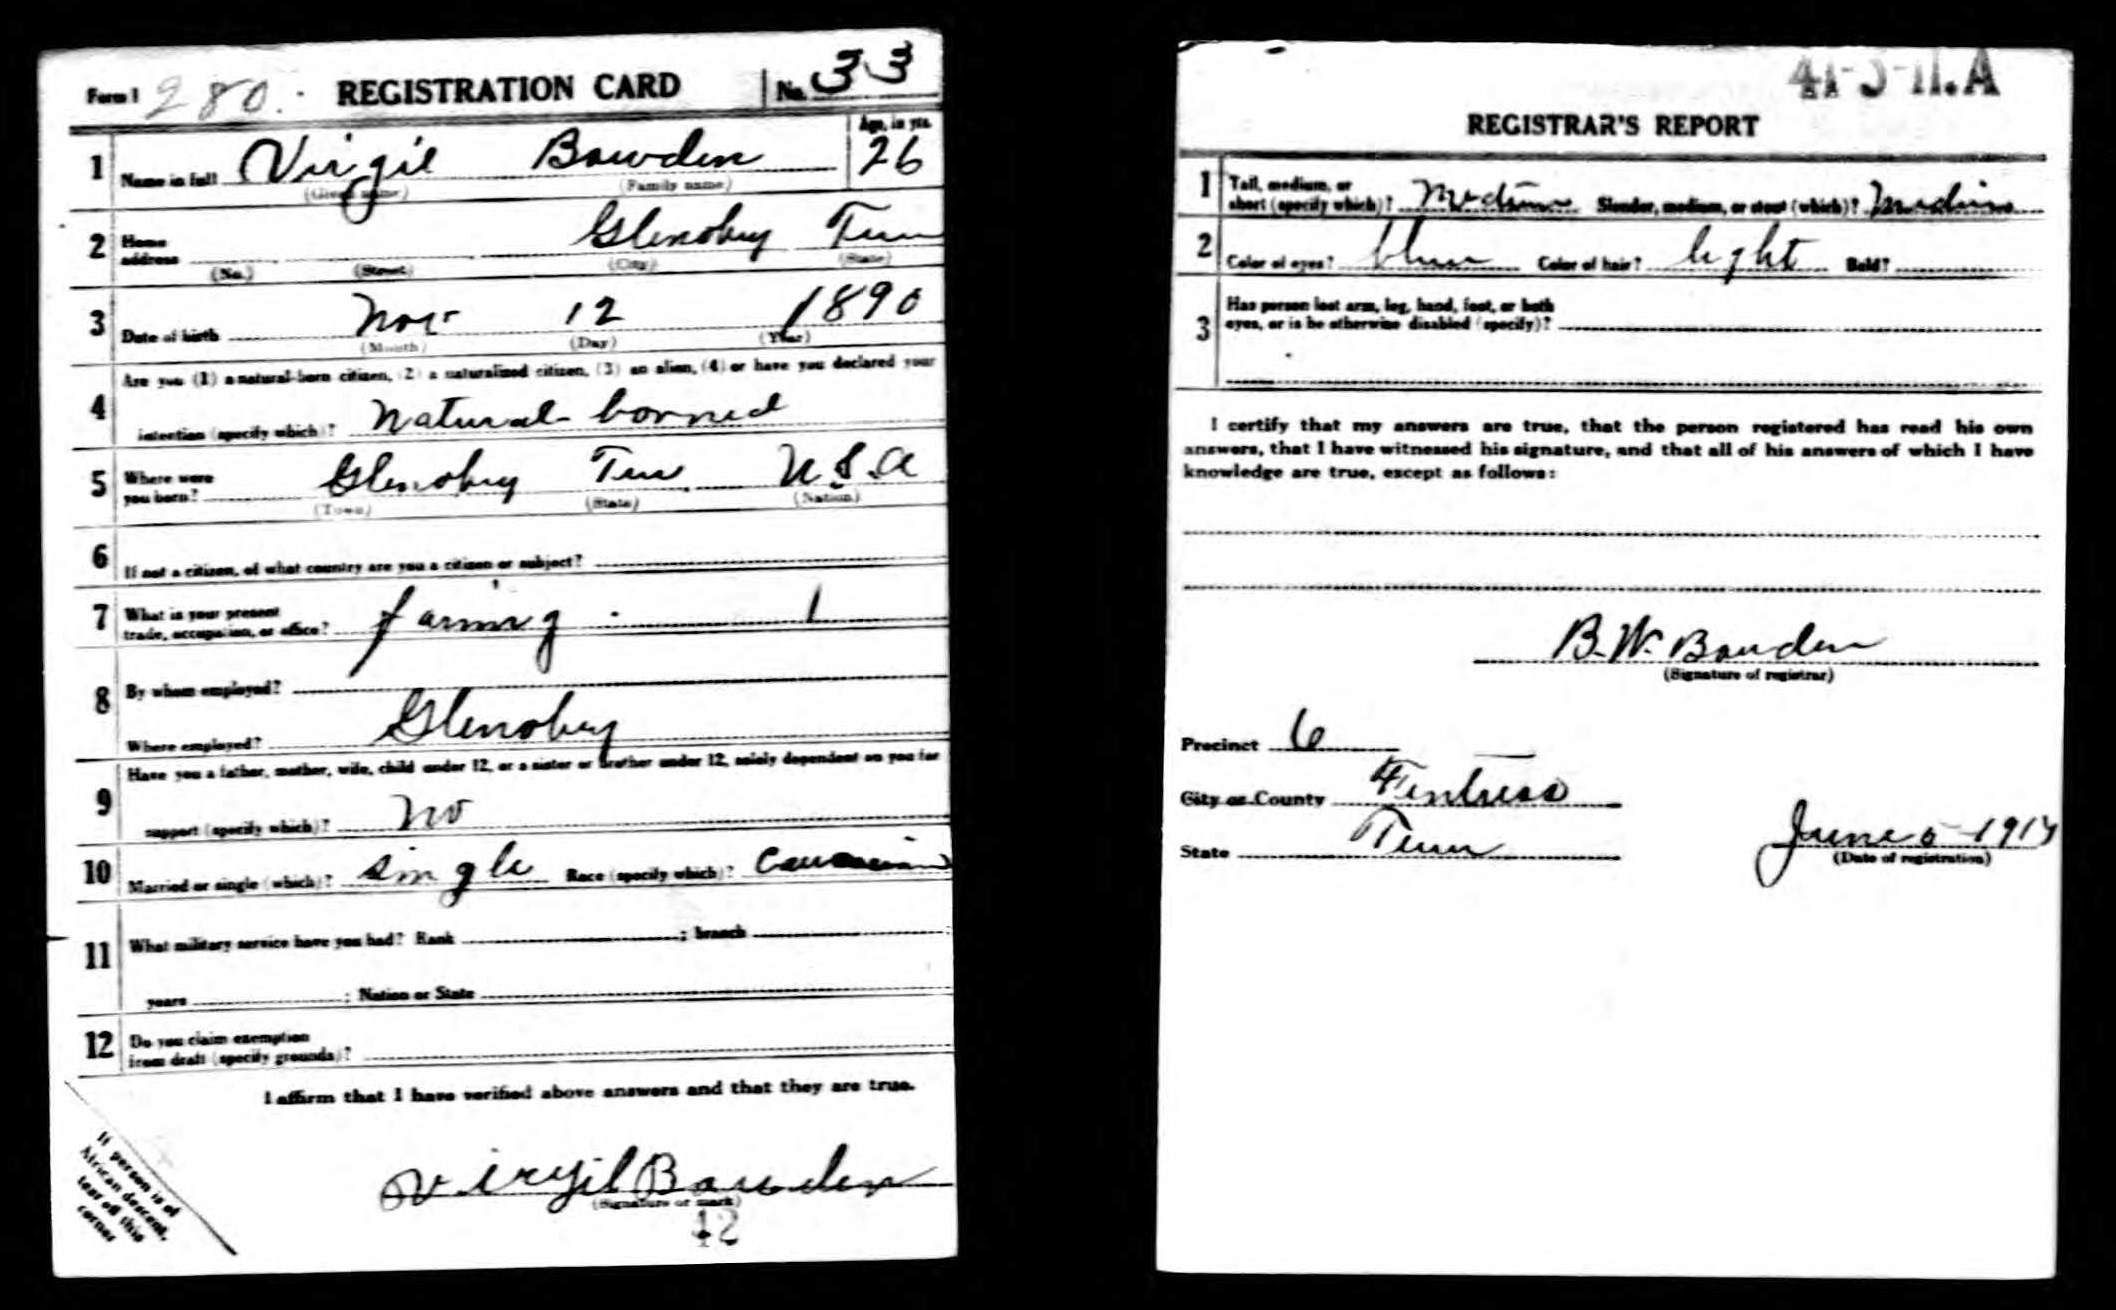 Form 1 280. REGISTRATION CARD No. 33
1 Name in full Virgil Bowden Age, in yrs. 26
(Given name) (Family name)
2 Home address Glenobey Tenn
(No.) (Street) (City) (State)
3 Date of birth Nov 12 1890
(Month) (Day) (Year)
Are you (1) a natural-born citizen, (2) a naturalized citizen, (3) an alien, (4) or have you declared your
4 intention (specify which)? Natural borned
5 Where were you born? Glenobey Tenn U.S.A
(Town) (State) (Nation)
6 If not a citizen, of what country are you a citizen or subject?
7 What is your present trade, occupation, or office? farming 1
8 By whom employed?
Where employed? Glenobey
Have you a father, mother, wife, child under 12, or a sister or brother under 12, solely dependent on you for
9 support (specify which)? No
10 Married or single (which)? single Race (specify which)? Caucasian
11 What military service have you had? Rank ; branch
years ; Nation or State
12 Do you claim exemption
from draft (specify grounds)?
I affirm that I have verified above answers and that they are true.
Virgil Bowden
(Signature or mark)
42
If person is of
African descent,
tear off this
corner
REGISTRAR'S REPORT
1 Tall, medium, or
short (specify which)? Medium Slender, medium, or stout (which)? medium
2 Color of eyes? blue Color of hair? light Bald?
3 Has person lost arm, leg, hand, foot, or both
eyes, or is he otherwise disabled (specify)?
I certify that my answers are true, that the person registered has read his own
answers, that I have witnessed his signature, and that all of his answers of which I have
knowledge are true, except as follows:
B. W. Bowden
(Signature of registrar)
Precinct 6
City or County Fentress
State Tenn June 5 1917
(Date of registration)